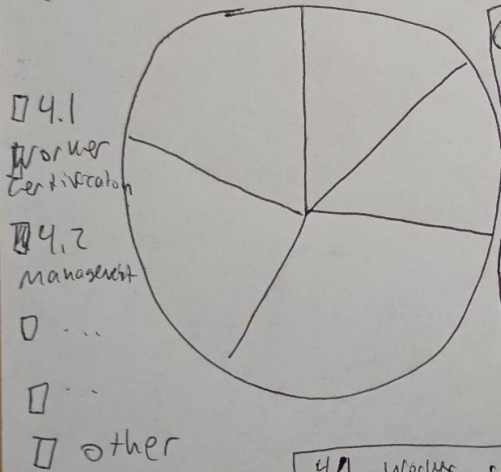 4.1
Worker
Certification
4.2
Management
...
...
other
4.1 Worker